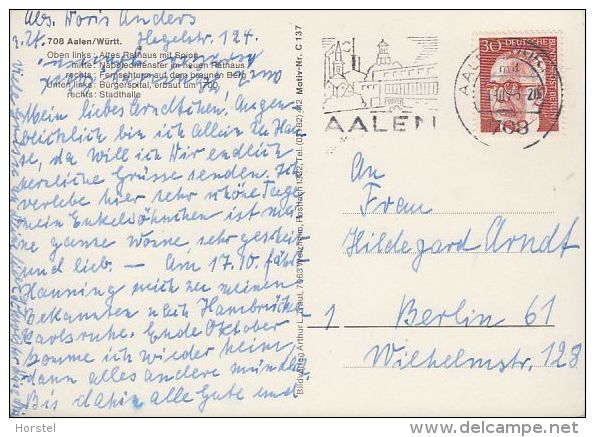 Abs. Doris Anders
z. Zt. Hegelstr. 124.
708 Aalen/Württ.
Oben links: Altes Rathaus mit Spion
mitte: Napoleonfenster im neuen Rathaus
rechts: Fernsehturm auf dem braunen Berg
Unten links: Bürgerspital, erbaut um 1700
rechts: Stadthalle
Mein liebes Arndtchen! Augen-
blicklich bin ich allein zu Hau-
se, da will ich Dir endlich
herzliche Grüsse senden. Ich
verlebe hier sehr schöne Tage
mein Enkelsöhnchen ist
eine ganze Wonne, sehr gescheit
und lieb. — Am 17.10. fährt
Henning mich zu meinen
Bekannten nach
Karlsruhe. Ende Oktober
komme ich wieder heim,
dann alles andere mündlich
Bis dahin alle Gute und
Bildverlag Arthur L. Traut, 7063 Welzheim, Postfach 1332, Tel. (07182) 842 Motiv-Nr. C 137
AALEN
30
DEUTSCHE BUNDESPOST
708
An
Frau
Hildegard Arndt
1 Berlin 61
Wilhelmstr. 128
Horstel
delcampe.net